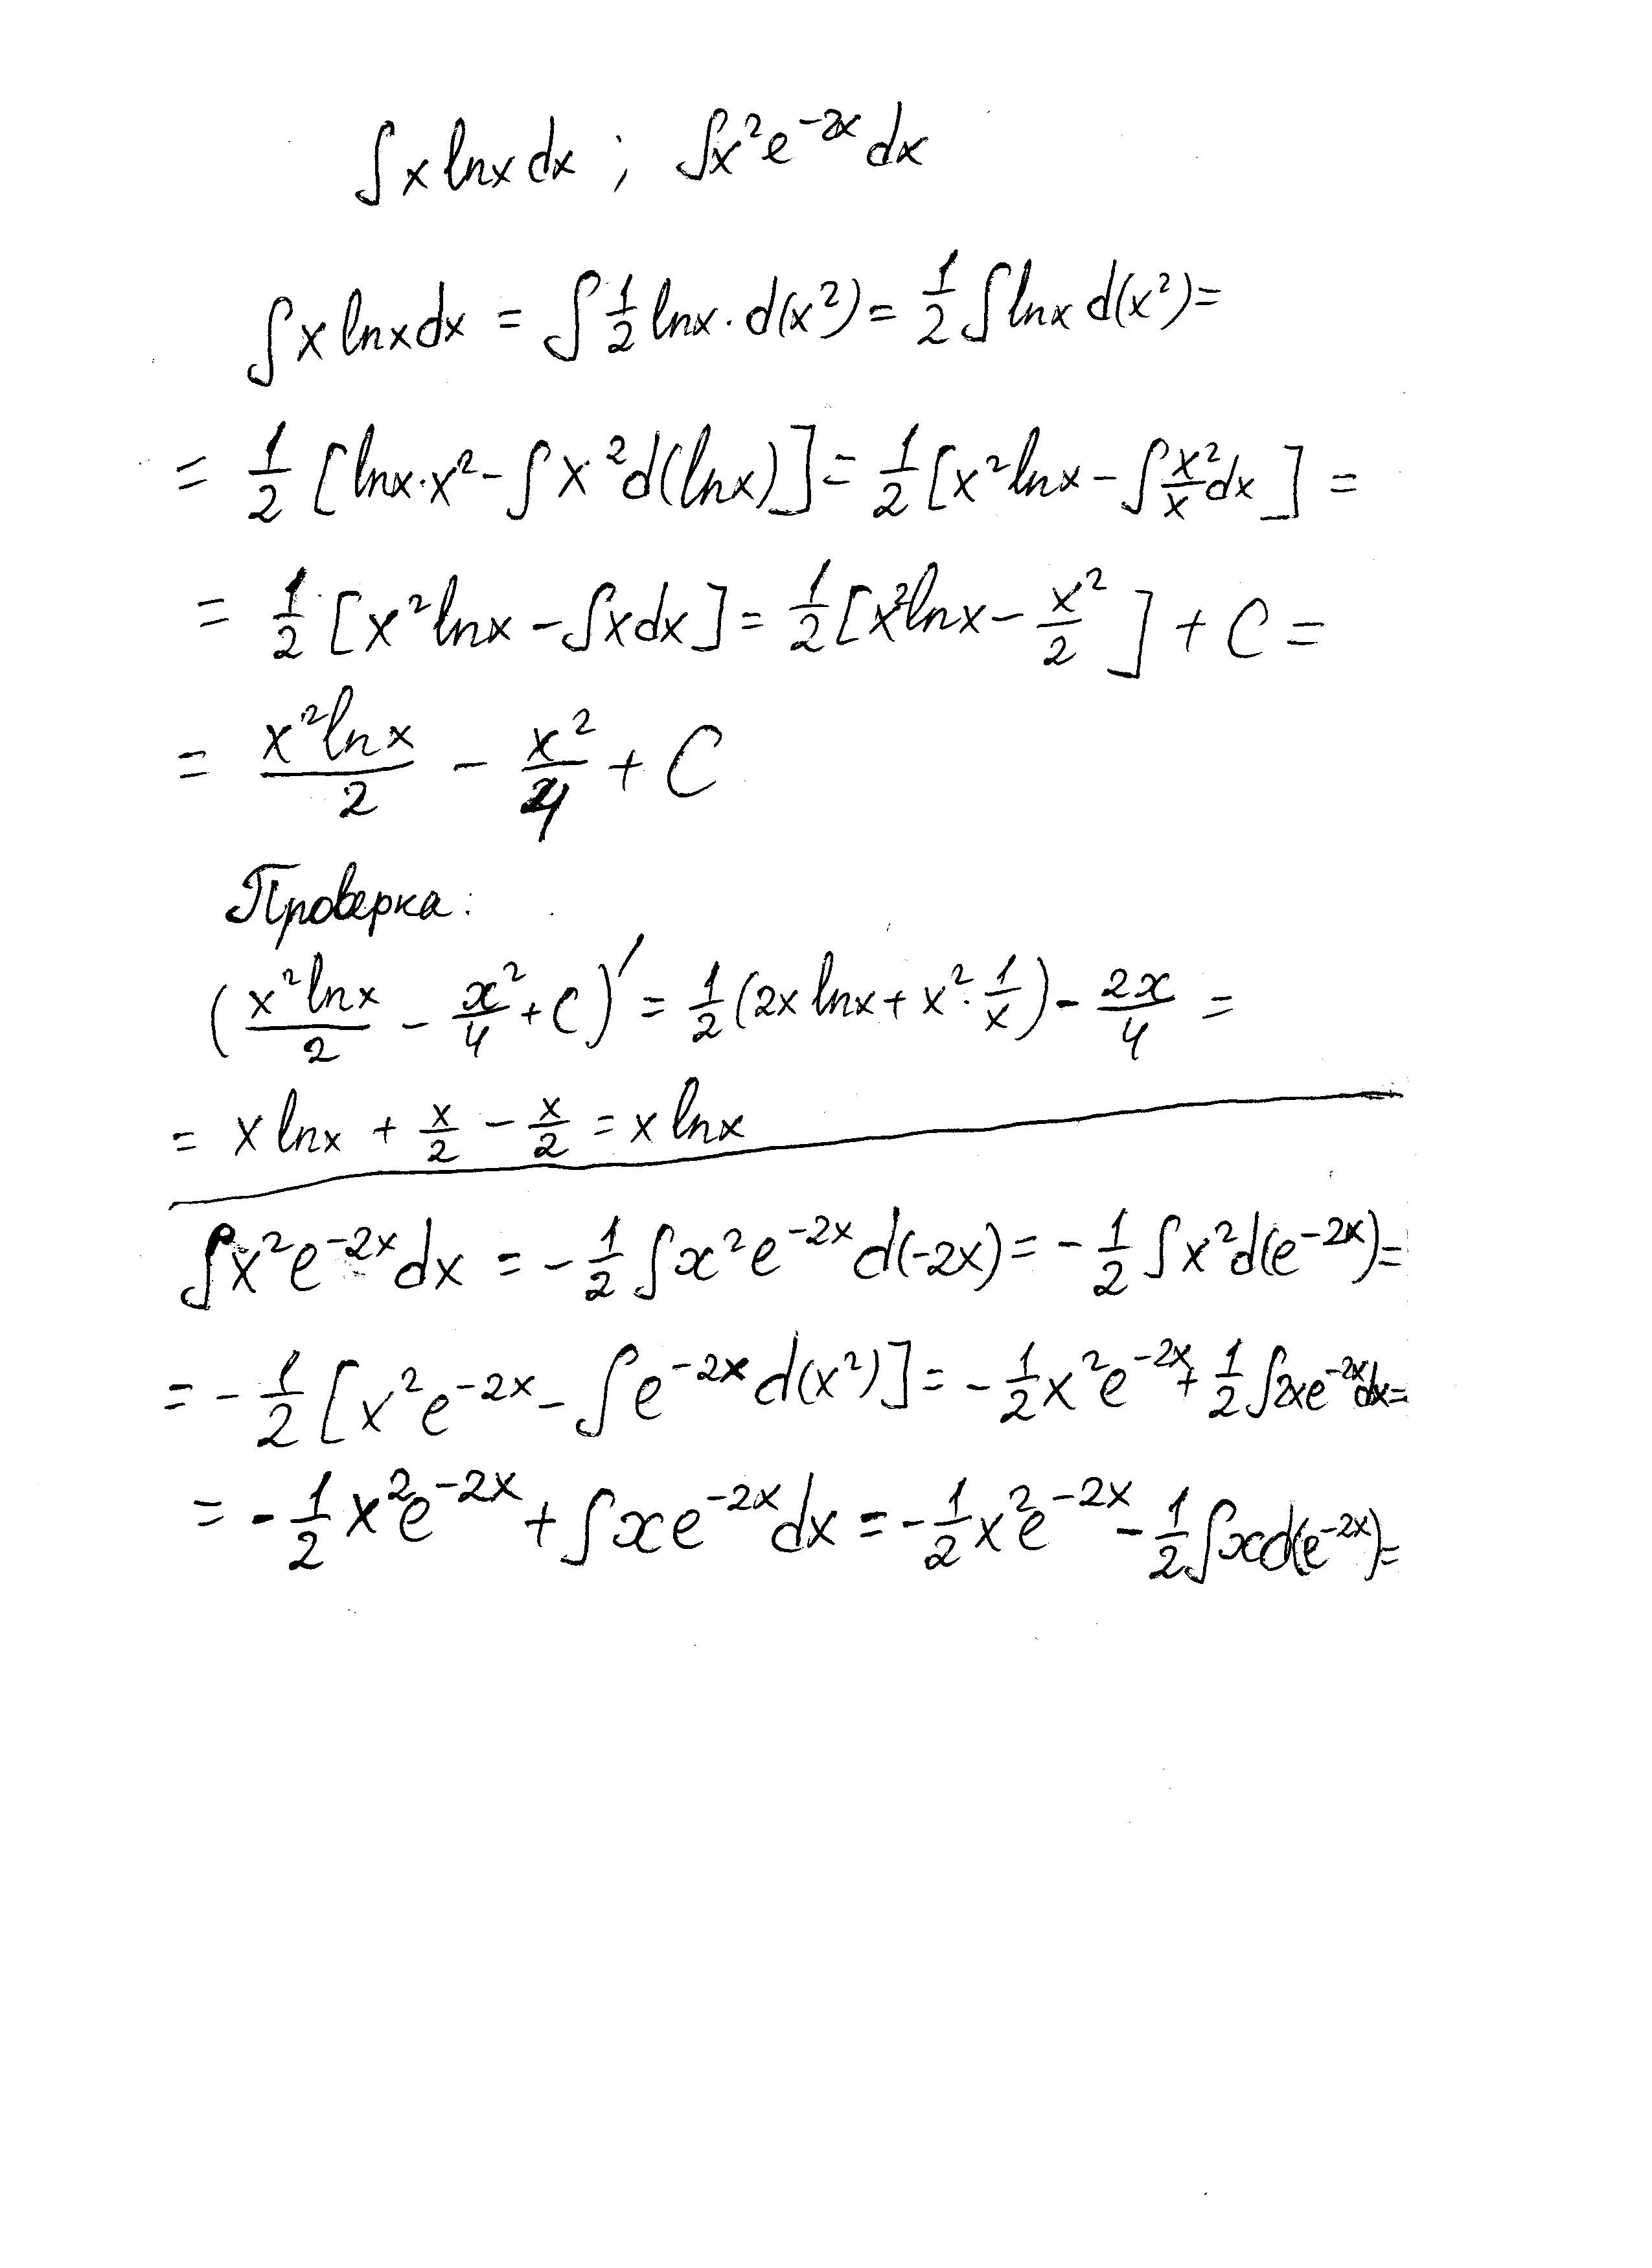 ∫x lnx dx ; ∫x²e⁻²ˣ dx
∫x lnx dx = ∫ 1/2 lnx · d(x²) = 1/2 ∫lnx d(x²) =
= 1/2 [lnx·x² - ∫x²d(lnx)] = 1/2 [x²lnx - ∫x²/x dx] =
= 1/2 [x²lnx - ∫xdx] = 1/2 [x²lnx - x²/2] + C =
= x²lnx/2 - x²/4 + C
Проверка:
(x²lnx/2 - x²/4 + C)′ = 1/2 (2x lnx + x² · 1/x) - 2x/4 =
= x lnx + x/2 - x/2 = x lnx
∫x²e⁻²ˣ dx = - 1/2 ∫x²e⁻²ˣ d(-2x) = - 1/2 ∫x²d(e⁻²ˣ) =
= - 1/2 [x²e⁻²ˣ - ∫e⁻²ˣ d(x²)] = - 1/2 x²e⁻²ˣ + 1/2 ∫2xe⁻²ˣdx =
= - 1/2 x²e⁻²ˣ + ∫xe⁻²ˣdx = - 1/2 x²e⁻²ˣ - 1/2 ∫xd(e⁻²ˣ) =